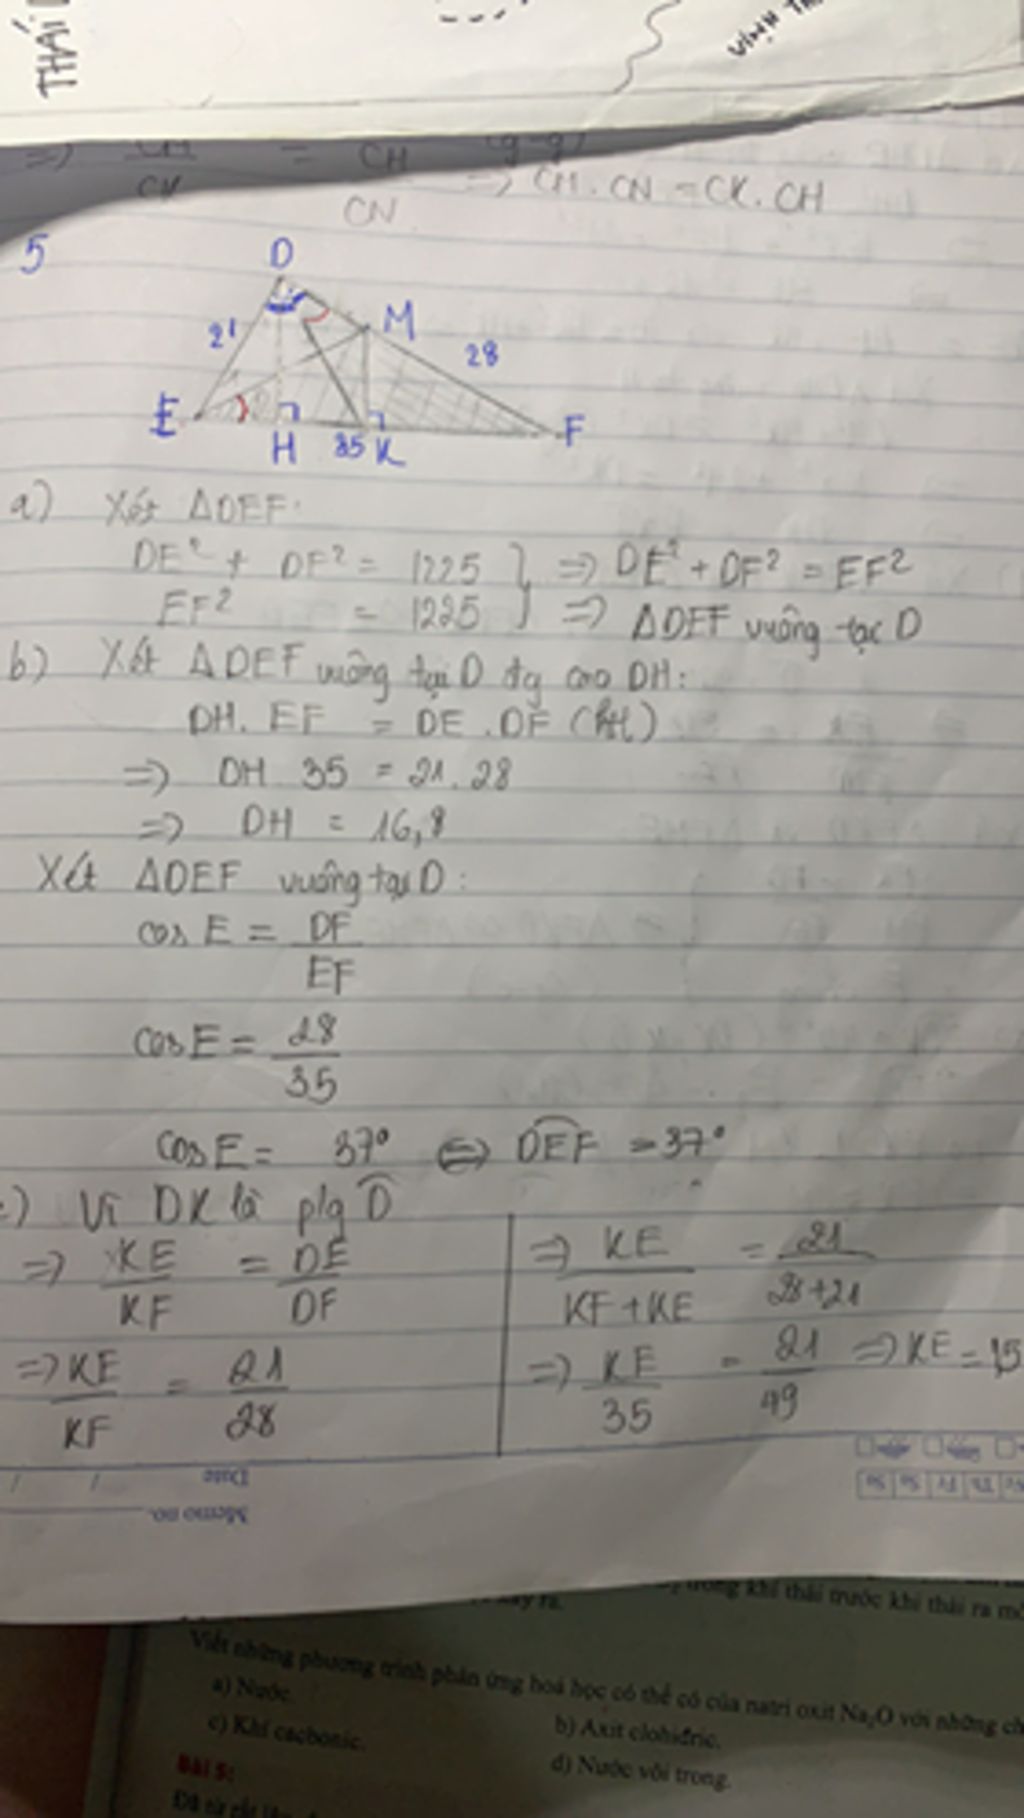 THÁI
VỊNH
CK
=
CH
CN
=> CM.CN = CK.CH
5
D
21
M
28
E
H 35 K
F
a) Xét ΔDEF:
DE² + DF² = 1225 } => DE² + DF² = EF²
EF² = 1225 => ΔDEF vuông tại D
b) Xét ΔDEF vuông tại D đg cao DH:
DH. EF = DE . DF (htl)
=> DH 35 = 21.28
=> DH = 16,8
Xét ΔDEF vuông tại D:
cos E = DF
EF
cos E = 28
35
cos E = 37° <=> DEF = 37°
c) Vì DK là p/g D
=> KE = DE
KF DF
=> KE = 21
KF 28
=> KE = 21
KF + KE 28+21
=> KE = 21 => KE = 15
35 49
Date / /
Memo no.
Tu Th Fr Sa Su
trong khí thải trước khí thải ra
Viết những phương trình phản ứng hoá học có thể có của natri oxit Na₂O với những
a) Nước.
b) Axit clohiđric.
c) Khí cacbonic.
d) Nước vôi trong.
Bài 5: